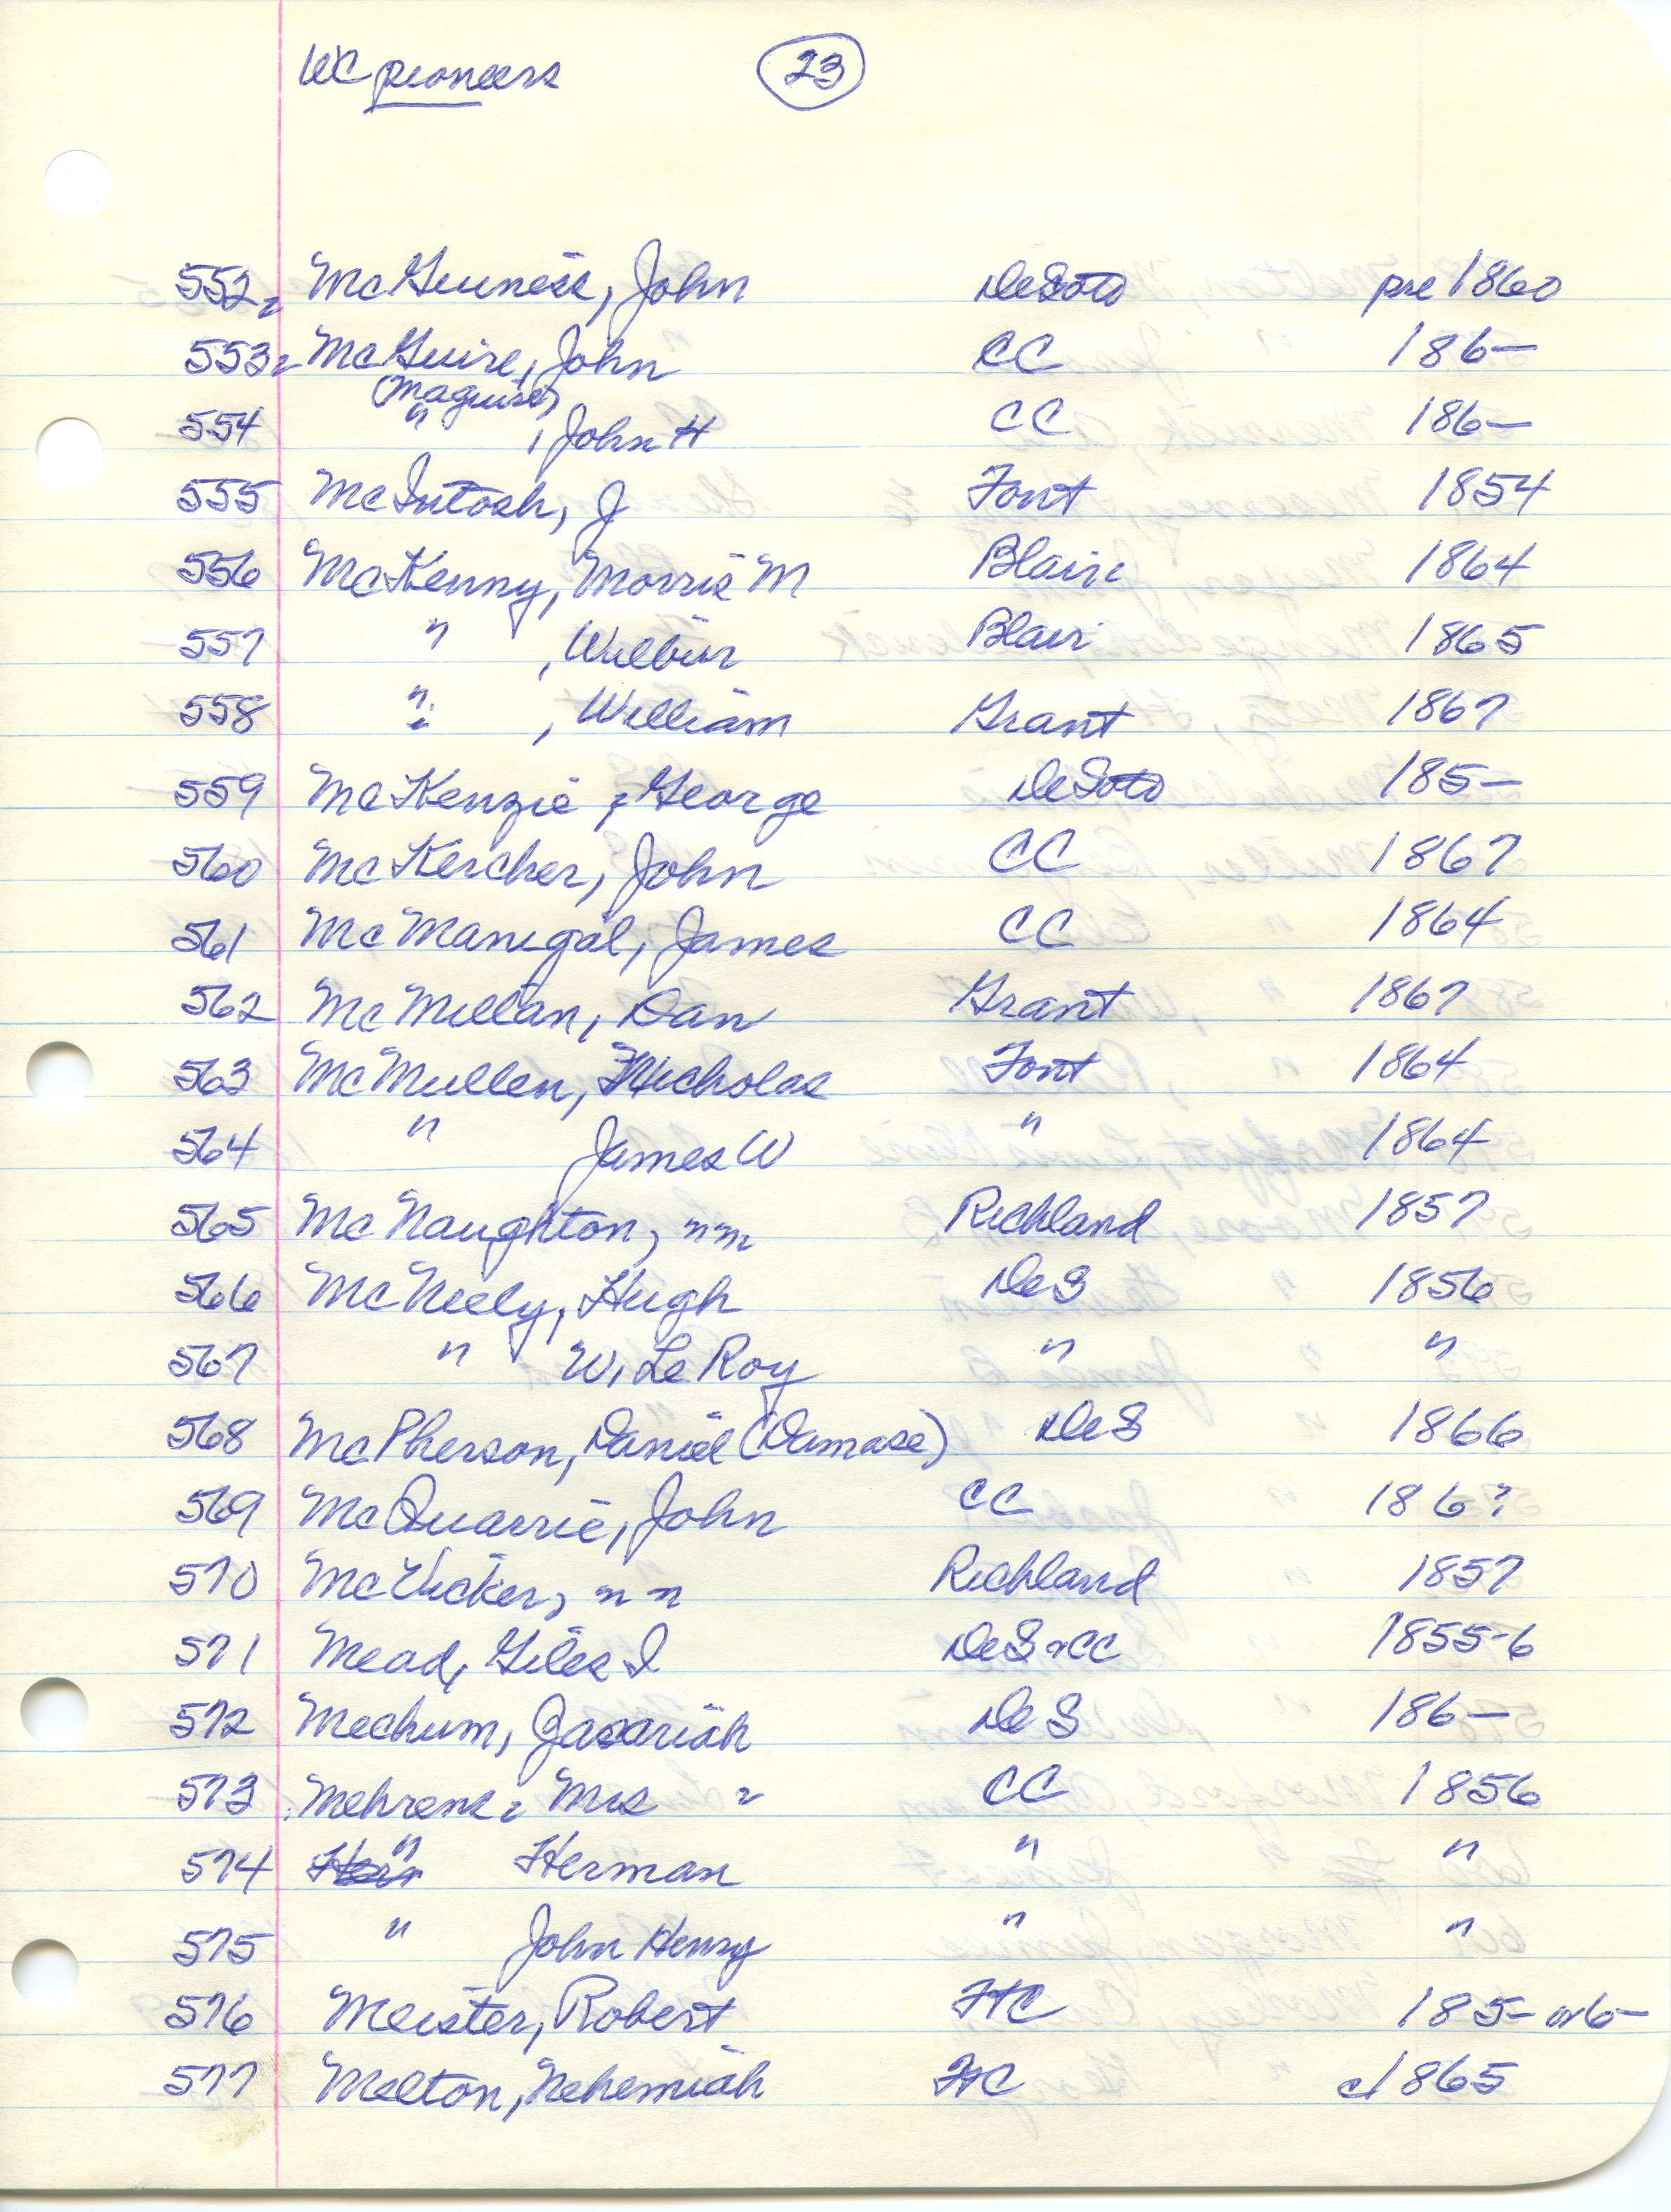 WC pioneers 23
552 McGuiness, John DeSoto pre 1860
553 McGuire, John CC 186—
(Maguire)
554 " , John H CC 186—
555 McIntosh, J Font 1854
556 McKenny, Morris M Blair 1864
557 " , Wilbur Blair 1865
558 " , William Grant 1867
559 McKenzie, George DeSoto 185—
560 McKercher, John CC 1867
561 McManigal, James CC 1864
562 McMillan, Dan Grant 1867
563 McMullen, Nicholas Font 1864
564 " James W " 1864
565 McNaughton, nn Richland 1857
566 McNeely, Hugh DeS 1856
567 " W. LeRoy " "
568 McPherson, Daniel (Damase) DeS 1866
569 McQuarrie, John CC 186?
570 McVicker, nn Richland 1857
571 Mead, Giles I DeS & CC 1855-6
572 Mechum, Zacariah DeS 186—
573 Mehrens, Mrs CC 1856
574 " Herman " "
575 " John Henry " "
576 Meister, Robert FtC 185— or 6—
577 Melton, Nehemiah FtC c1865